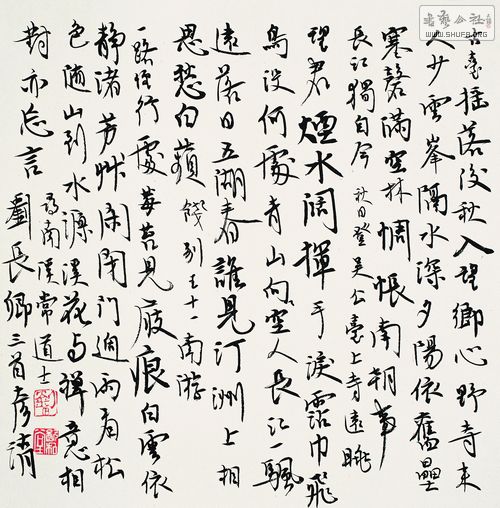 書藝公社
WWW.SHUFA.ORG
古臺搖落後秋入望鄉心野寺來
人少雲峯隔水深夕陽依舊壘
寒磬滿空林惆悵南朝事
長江獨自今 秋日登吳公臺上寺遠眺
望君煙水闊揮手淚霑巾飛
鳥沒何處青山向空人長江一颿
遠落日五湖春誰見汀洲上相
思愁白蘋 餞別王十一南游
一路經行處莓苔見屐痕白雲依
靜渚芳艸閑閉門過雨看松
色隨山到水源溪花与禪意相
對亦忘言 尋南溪常道士
劉長卿三首